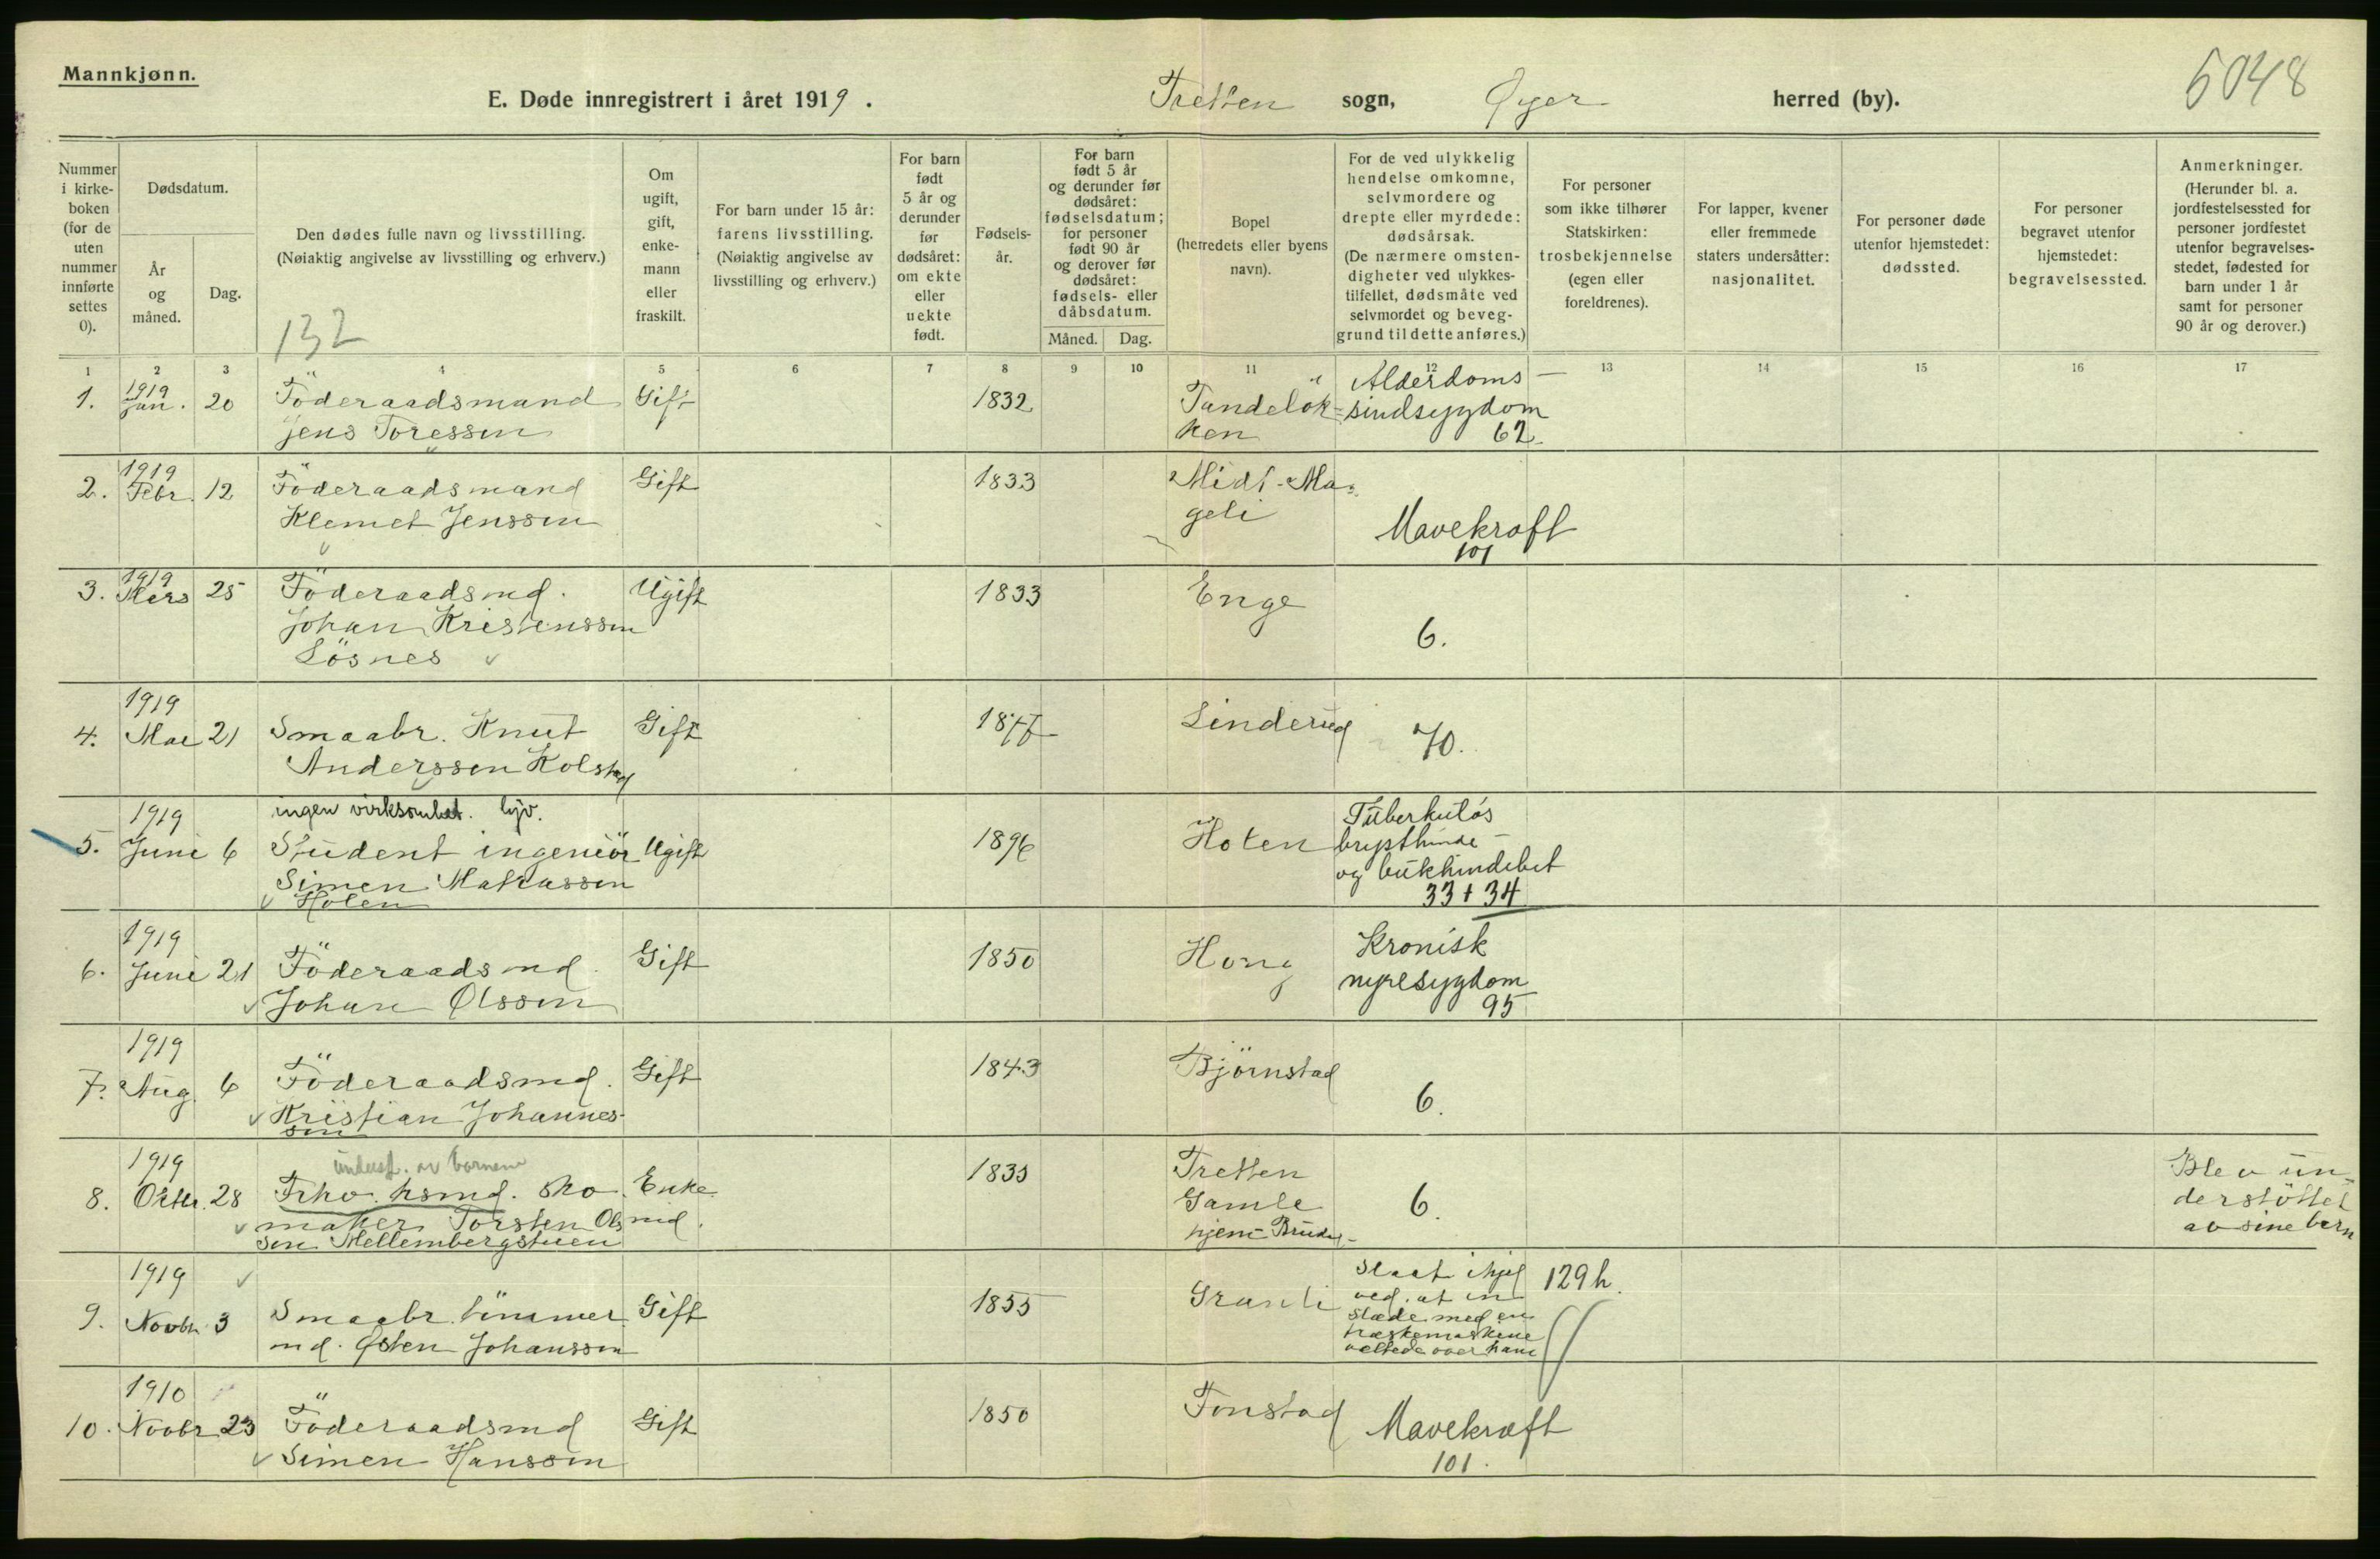 Mannkjønn.
E. Døde innregistrert i året 1919 . Tretten sogn, Øyer herred (by). 5048
Nummer i kirke- boken (for de uten nummer innførte settes 0).
Dødsdatum.
År og måned.
Dag.
Den dødes fulle navn og livsstilling.
(Nøiaktig angivelse av livsstilling og erhverv.)
132
Om ugift, gift, enke- mann eller fraskilt.
For barn under 15 år: farens livsstilling. (Nøiaktig angivelse av livsstilling og erhverv.)
For barn født 5 år og derunder før dødsåret: om ekte eller uekte født.
Fødsels- år.
For barn født 5 år og derunder før dødsåret: fødselsdatum; for personer født 90 år og derover før dødsåret: fødsels- eller dåbsdatum.
Måned. Dag.
Bopel (herredets eller byens navn).
For de ved ulykkelig hendelse omkomne, selvmordere og drepte eller myrdede: dødsårsak. (De nærmere omsten- digheter ved ulykkes- tilfellet, dødsmåte ved selvmordet og beveg- grund til dette anføres.)
For personer som ikke tilhører Statskirken: trosbekjennelse (egen eller foreldrenes).
For lapper, kvener eller fremmede staters undersåtter: nasjonalitet.
For personer døde utenfor hjemstedet: dødssted.
For personer begravet utenfor hjemstedet: begravelsessted.
Anmerkninger. (Herunder bl. a. jordfestelsessted for personer jordfestet utenfor begravelses- stedet, fødested for barn under 1 år samt for personer 90 år og derover.)
1 2 3 4 5 6 7 8 9 10 11 12 13 14 15 16 17
1. 1919 Jan. 20 Föderaadsmand Gift 1832 Tandelök= Alderdoms-
Jens Toressen ken sindsygdom
62.
2. 1919 Febr. 12 Föderaadsmand Gift 1833 Midt-Ma=
Klemet Jenssen geli Mavekræft
101
3. 1919 Mars 25 Föderaadsmd. Ugift 1833 Enge
Johan Kristenssen 6.
Lösnes
4. 1919 Mai 21 Smaabr. Knut Gift 1877 Linderud 70.
Anderssen Kolstad
ingen virksomhet. lyv.
5. 1919 Juni 6 Student ingeniör Ugift 1896 Holen Tuberkuløs
Simen Matiassen brysthinde-
Holen og bukhindebet
33 + 34
6. 1919 Juni 21 Föderaadsmd. Gift 1850 Hong Kronisk
Johan Olssen nyresygdom
95
7. 1919 Aug. 6 Föderaadsmd. Gift 1843 Björnstad
Kristian Johannes- 6.
sen
underst. av barnene
8. 1919 Oktbr. 28 Frhv. hsmd. sko- Enke- 1835 Tretten Blev un=
maker Torsten Ols md. Gamle 6. derstöttet
sen Mellembergstuen hjem- av sine barn
9. 1919 Novbr. 3 Smaabr. tömmer Gift 1855 Granli Slaat ihjel 129 h.
md. Østen Johanssen ved, at en
slæde med en
træskemaskine
veltede over ham
10. 1910 Novbr. 23 Föderaadsmd Gift 1850 Fonstad Mavekræft
Simen Hanssen 101.